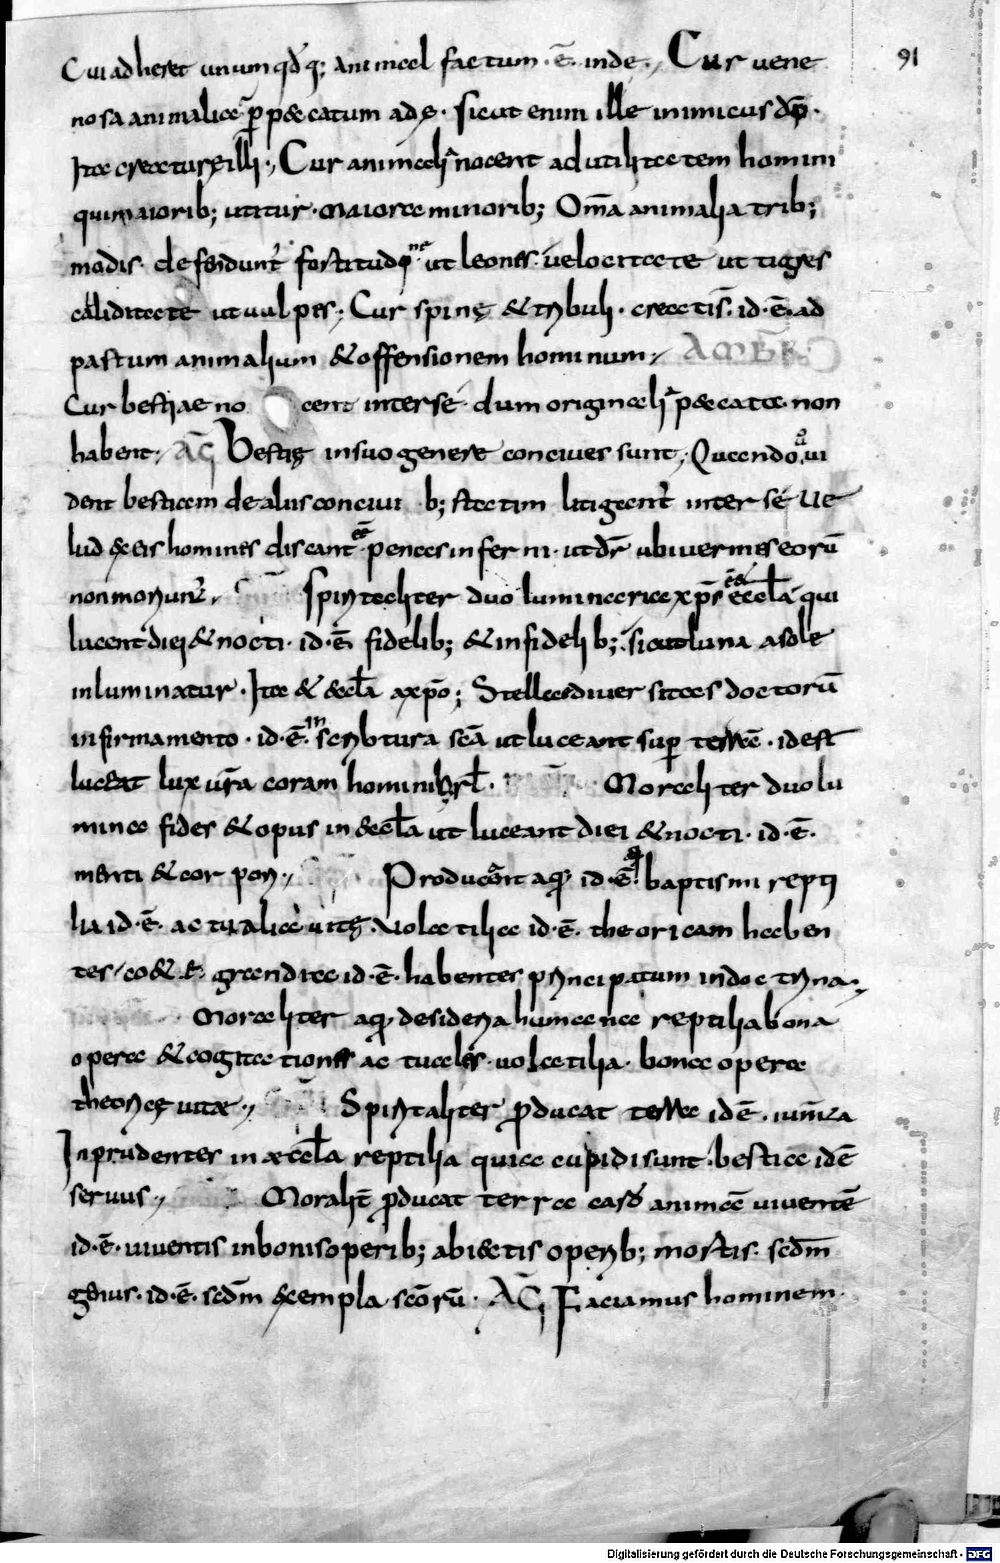 Cui adheret unum qd̄q; animal factum · ē · inde ·, Cur uene 91
nosa animalia p̱ peccatum adę · Sicut enim ille inimicus dō ·
Ita creaturę illi ·, Cur animalia nocent ad utilitatem homini
qui maiorib; utitur · maiora minorib; Om̄a animalia trib;
modis · defendunt᷑ fortitudine ut leones · uelocitate ut tigres
caliditate ut uulpes ·, Cur spinę & tribuli · creatis̄ · id · ē · ad
pastum animalium & offensionem hominum ·,
Cur bestiae nocent inter se · dum originalia peccata · non
habent ·, AḠ Bestię in suo genere conciues sunt ·, Quando ui
dent bestiam de aliis conciuib; statim litigant᷑ inter se ue
lud ex eis homines discant ēē penas inferni · ut dr̄ ubi uermes eorū
non moriunt᷑ ·, Spiritaliter duo luminaria xp̄s & ęccl̄a qui
lucent diei & nocti · id · ē fidelib; & infidelib; sicut luna a sole
inluminatur · Ita & æccl̄a a xp̄o ; Stellas diuersitas doctorū
in firmamento · id · ē · in scribtura sc̄a ut luceant sup̱ terrā · id est
luceat lux ur̄a coram hominib; rl̄ · Moraliter duo lu
mina fides & opus in æccl̄a ut luceant diei & nocti · id · ē ·
menti & corpori ·, Producant aquę id · ē · baptismi repti
lia id · ē · actualia uitę · uolatilia id · ē · theoricam haben
tes / co& · & · grandita id · ē · habentes principatum in doctrina ·,
Moraliter aquę desideria humana reptilia bona
opera & cogitationes actuales · uolatilia · bona opera
theoricę uitae ·, Spiritaliter p̱ducat terra id ē ·
Inprudenter in æccl̄a reptilia qui a cupidi sunt · bestiae id ē
seruus ·, Moralit̄ p̱ducat terra casō animā uiuentē
id · ē · uiuentis in bonis operib; abiectis operib; mortis · scdm̄
genus · id · ē · scdm̄ exempla sc̄orū · AḠ Faciamus hominem ·
Digitalisierung gefördert durch die Deutsche Forschungsgemeinschaft - DFG